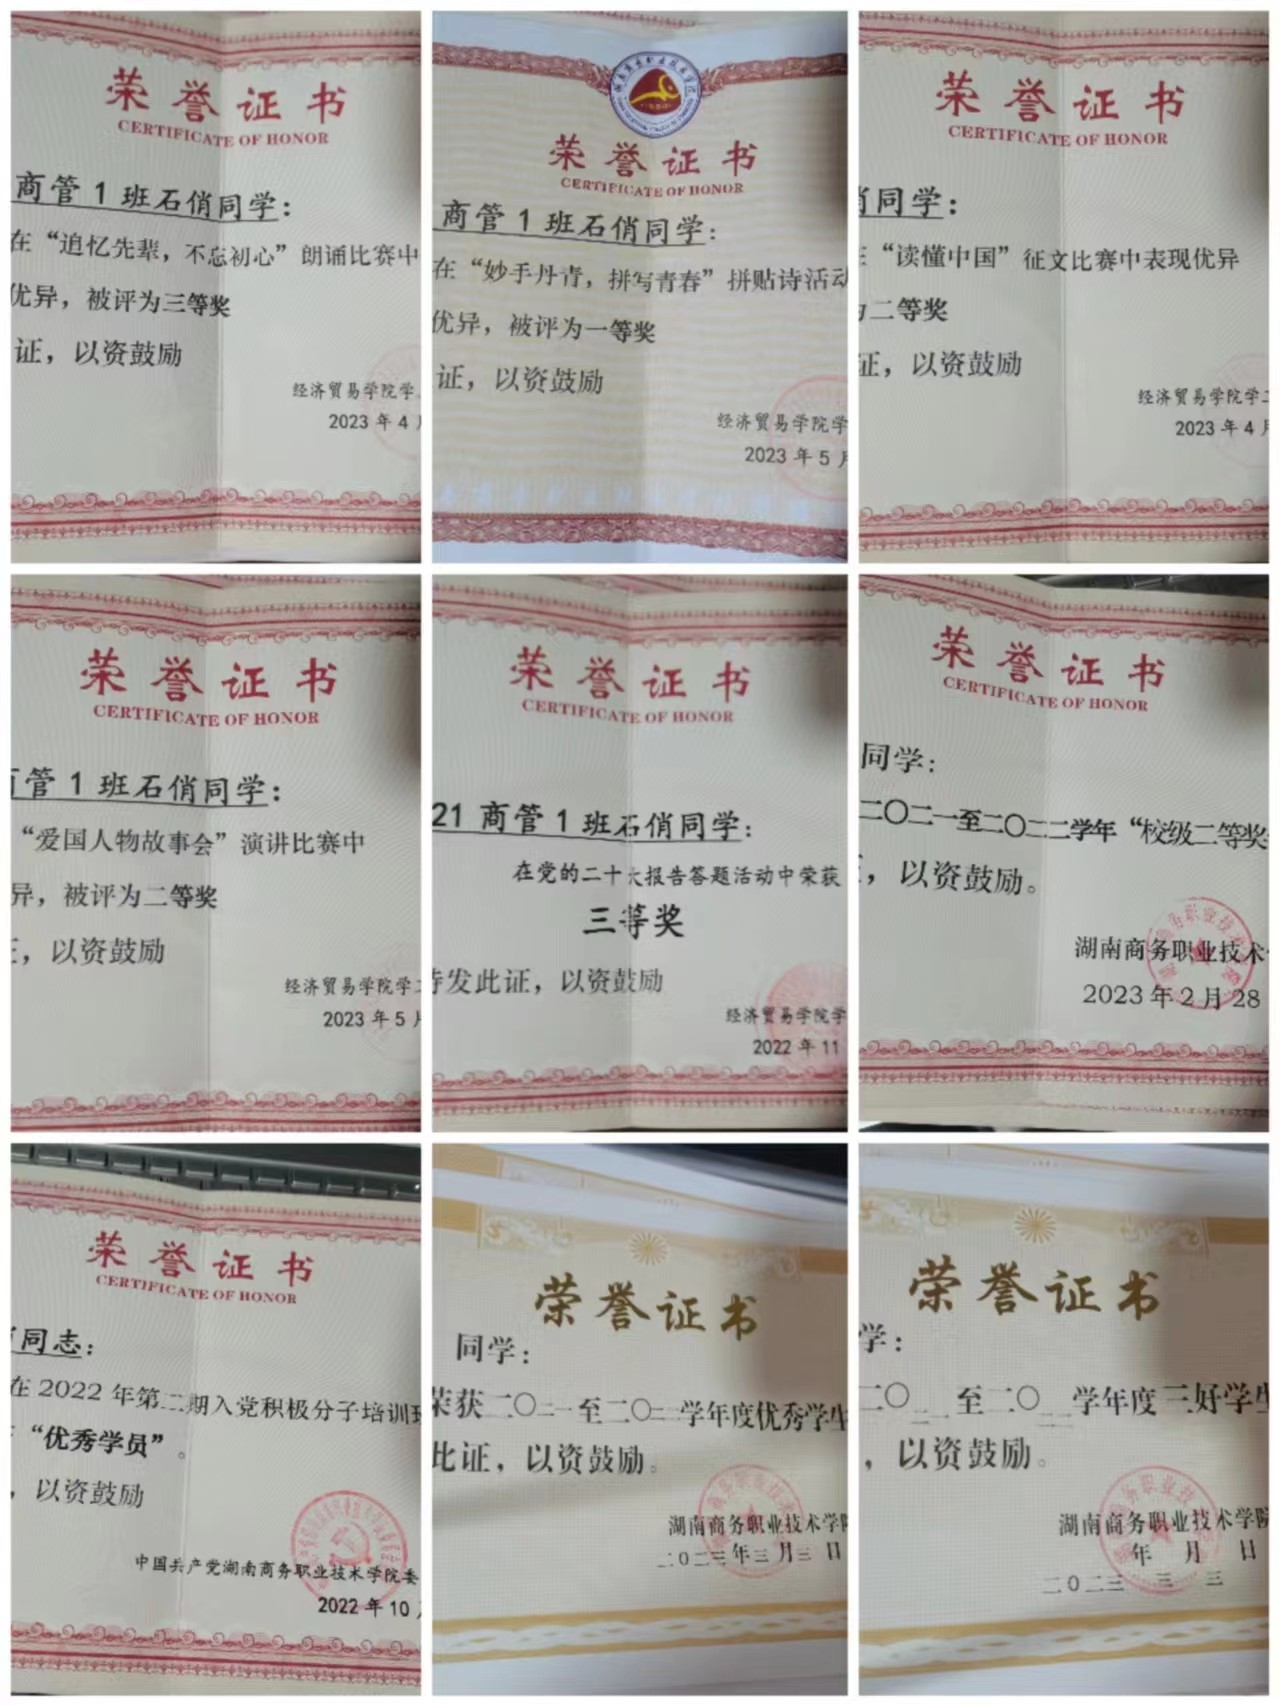 荣誉证书
CERTIFICATE OF HONOR
商管1班石俏同学：
在“追忆先辈，不忘初心”朗诵比赛中
优异，被评为三等奖
证，以资鼓励
经济贸易学院学
2023年4月
荣誉证书
CERTIFICATE OF HONOR
商管1班石俏同学：
在“妙手丹青，拼写青春”拼贴诗活动
优异，被评为一等奖
证，以资鼓励
经济贸易学院学
2023年5月
荣誉证书
CERTIFICATE OF HONOR
俏同学：
在“读懂中国”征文比赛中表现优异
为二等奖
证，以资鼓励
经济贸易学院学
2023年4月
荣誉证书
CERTIFICATE OF HONOR
商管1班石俏同学：
“爱国人物故事会”演讲比赛中
异，被评为二等奖
证，以资鼓励
经济贸易学院学
2023年5月
荣誉证书
CERTIFICATE OF HONOR
21商管1班石俏同学：
在党的二十大报告答题活动中荣获
三等奖
特发此证，以资鼓励
经济贸易学院学
2022年11
荣誉证书
CERTIFICATE OF HONOR
同学：
二〇二一至二〇二二学年“校级二等奖
，以资鼓励。
湖南商务职业技术
2023年2月28
荣誉证书
CERTIFICATE OF HONOR
同志：
在2022年第二期入党积极分子培训班
“优秀学员”。
，以资鼓励
中国共产党湖南商务职业技术学院委
2022年10月
荣誉证书
同学：
荣获二〇二一至二〇二二学年度优秀学生
此证，以资鼓励。
湖南商务职业技术学院
二〇二三年三月三日
荣誉证书
学：
二〇二一至二〇二二学年度三好学生
，以资鼓励。
湖南商务职业技术学院
年 月 日
二〇二三 三 三